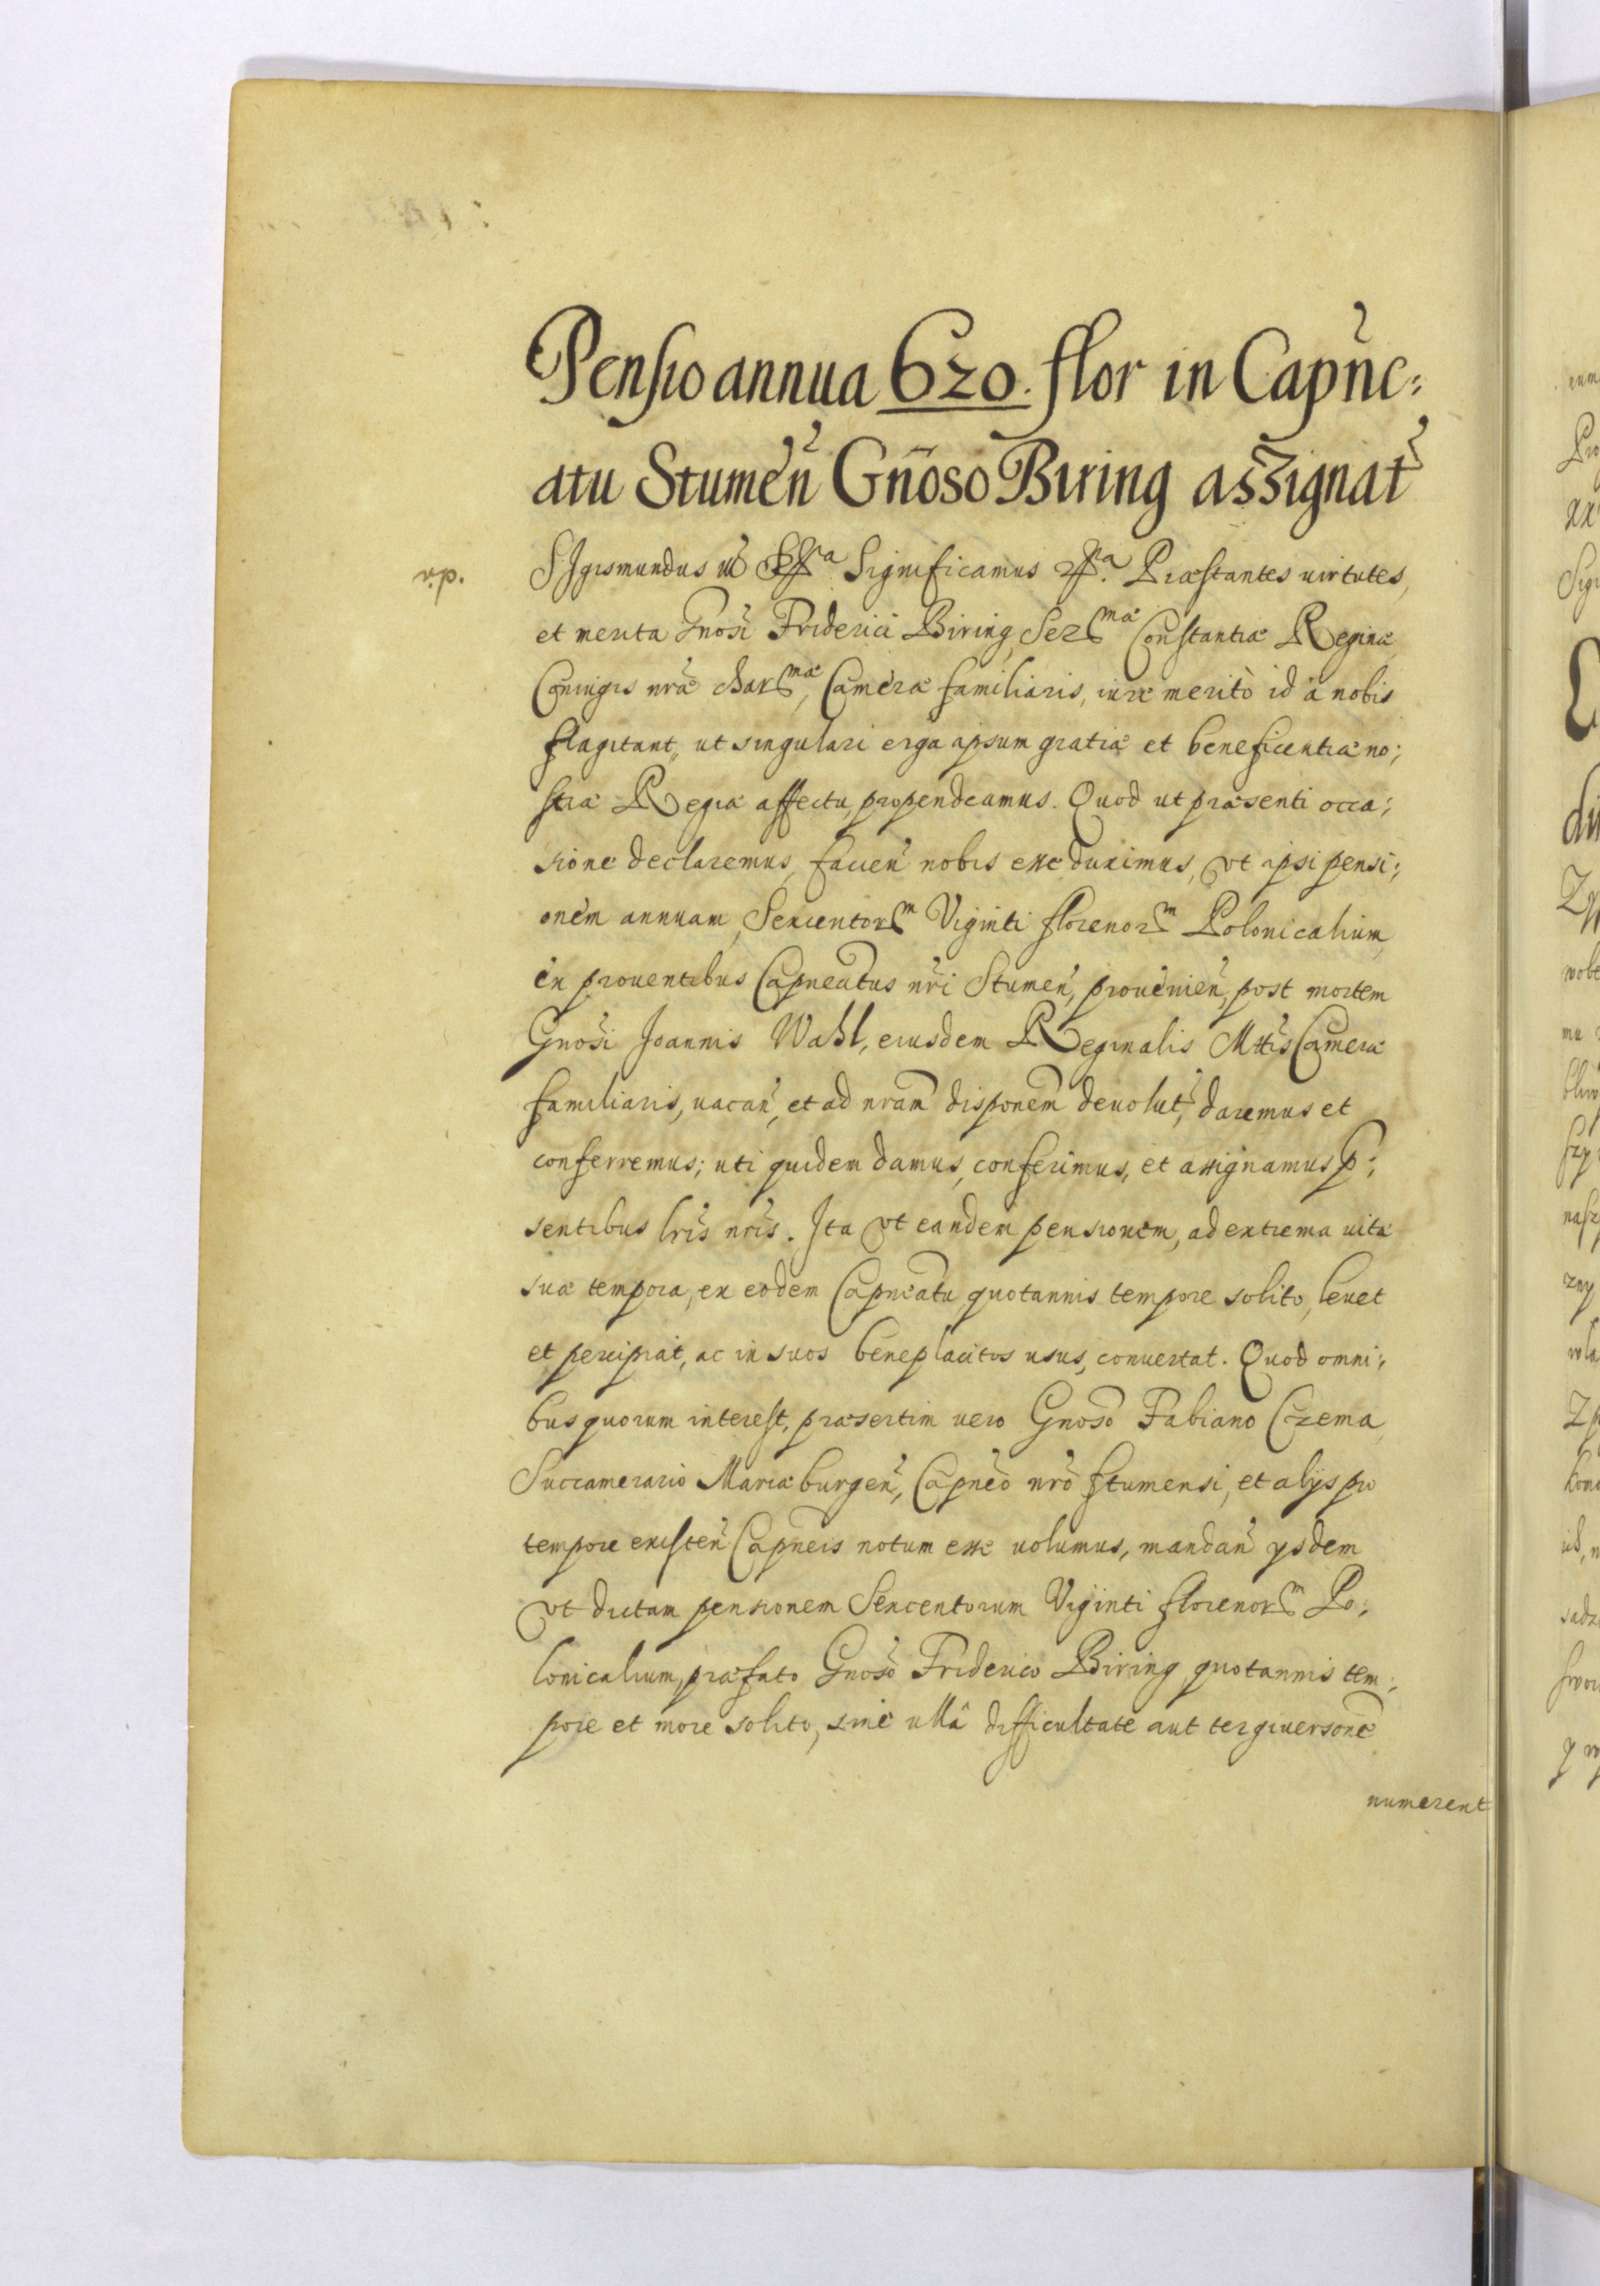 Pensio annua 620. flor in Capnē:
atu Stumeñ Gñoso Biring assignat
Sigismundus Significamus Præstantes virtutes,
et merita Gnosi Friderici Biring, Ser^mæ Constantiæ Reginæ
Coniugis nræ char^mæ, Cameræ familiaris, iure meritò id à nobis
flagitant, ut singulari erga ipsum gratiæ et beneficentiæ no:
stræ Regiæ affectu, propendeamus. Quod ut præsenti occa:
sione declaremus, facien nobis esse duximus, vt ipsi pensi:
onem annuam, Sexcentor^m Viginti florenor^m Polonicalium,
ex prouentibus Capneatus nri Stumen, prouenien, post mortem
Gnosi Joannis Wahl, eiusdem Reginalis Mttis Cameræ
familiaris, vacan, et ad nram disponem deuolut, daremus et
conferremus; uti quidem damus, conferimus, et assignamus p:
sentibus lris nris. Ita vt eandem pensionem, ad extrema uitæ
suæ tempora, ex eodem Capneatu quotannis tempore solito, leuet
et percipiat, ac in suos beneplacitos usus, conuertat. Quod omni:
bus quorum interest, præsertim uero Gnoso Fabiano Czema,
Succamerario Mariæburgen, Capneo nro Stumensi, et alijs pro
tempore existen Capneis notum esse uolumus, mandan ysdem
vt dictam pensionem Sexcentorum Viginti florenor^m Po:
lonicalium, præfato Gnoso Friderico Biring quotannis tem:
pore et more solito, sine ullâ difficultate aut tergiuersone
numerent